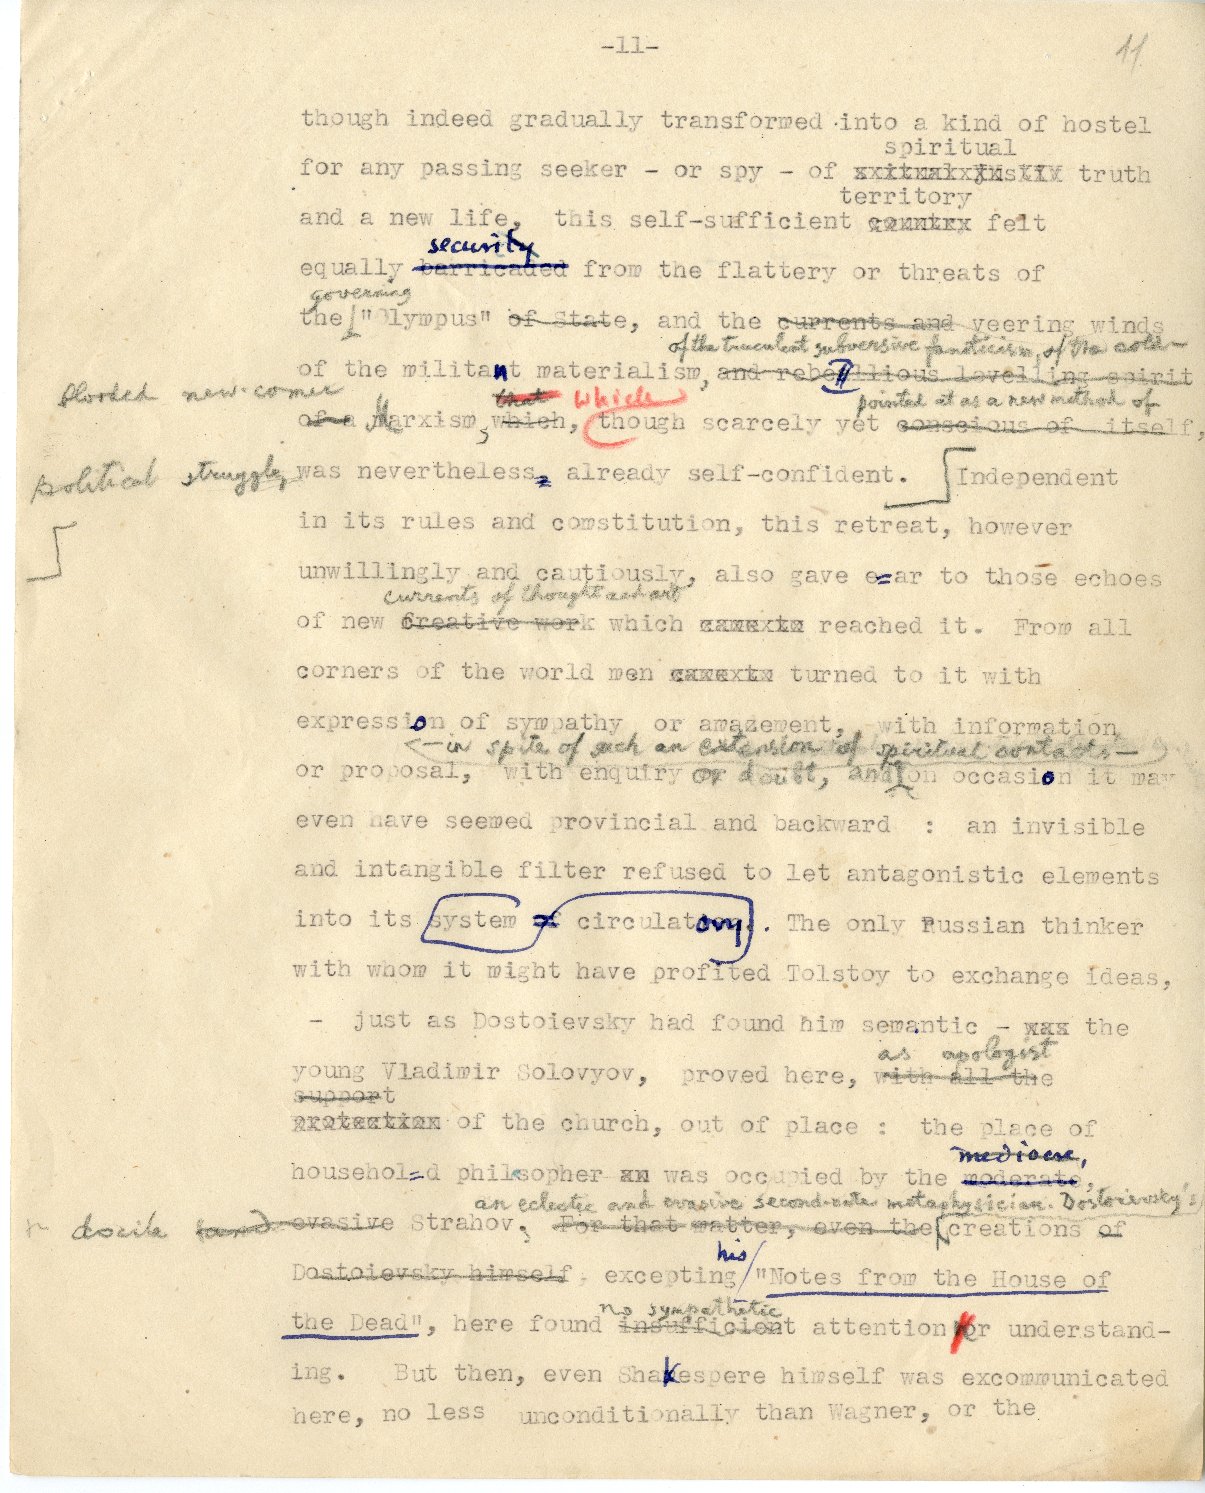 -11-
11
though indeed gradually transformed into a kind of hostel
spiritual
for any passing seeker - or spy - of truth
territory
and a new life, this self-sufficient country felt
security
equally barricaded from the flattery or threats of
governing
the "Olympus" of State, and the currents and veering winds
of the truculent subversive fanaticism, of the cold-
of the militant materialism, and rebellious levelling spirit
blooded new-comer
that which
pointed at as a new method of
of a Marxism, which, though scarcely yet conscious of itself,
political struggle,
was nevertheless, already self-confident. Independent
in its rules and comstitution, this retreat, however
unwillingly and cautiously, also gave e=ar to those echoes
currents of thought and art
of new creative work which came to reached it. From all
corners of the world men came to turned to it with
expression of sympathy or amazement, with information
- in spite of such an extension of spiritual contacts -
or proposal, with enquiry or doubt, and on occasion it may
even have seemed provincial and backward : an invisible
and intangible filter refused to let antagonistic elements
into its system of circulatory. The only Russian thinker
with whom it might have profited Tolstoy to exchange ideas,
- just as Dostoievsky had found him semantic - was the
as apologist
young Vladimir Solovyov, proved here, with all the
support
protection of the church, out of place : the place of
mediocre,
househol=d philsopher was occupied by the moderate,
an eclectic and evasive second-rate metaphysician. Dostoievsky's
docile and evasive Strahov. For that matter, even the creations of
his
Dostoievsky himself, excepting "Notes from the House of
no sympathetic
the Dead", here found insufficient attention or understand-
ing. But then, even Shakespere himself was excommunicated
here, no less unconditionally than Wagner, or the